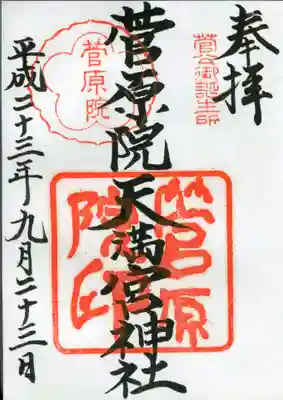 奉拝
菅公御誕生所
菅原院天満宮神社
菅原院
菅原院印
平成二十三年九月二十三日